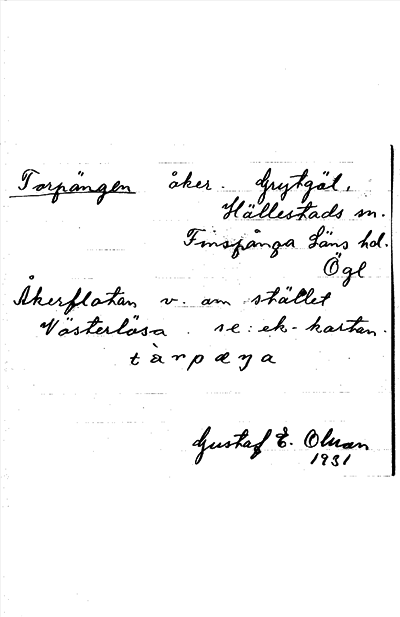 Torpängen åker. Grytgöl,
Hällestads sn.
Finspånga Läns hd.
Ögl
Åkerflatan v. om stället
Västerlösa. se: ek-kartan.
tàrpæŋa
Gustaf E. Olson
1931